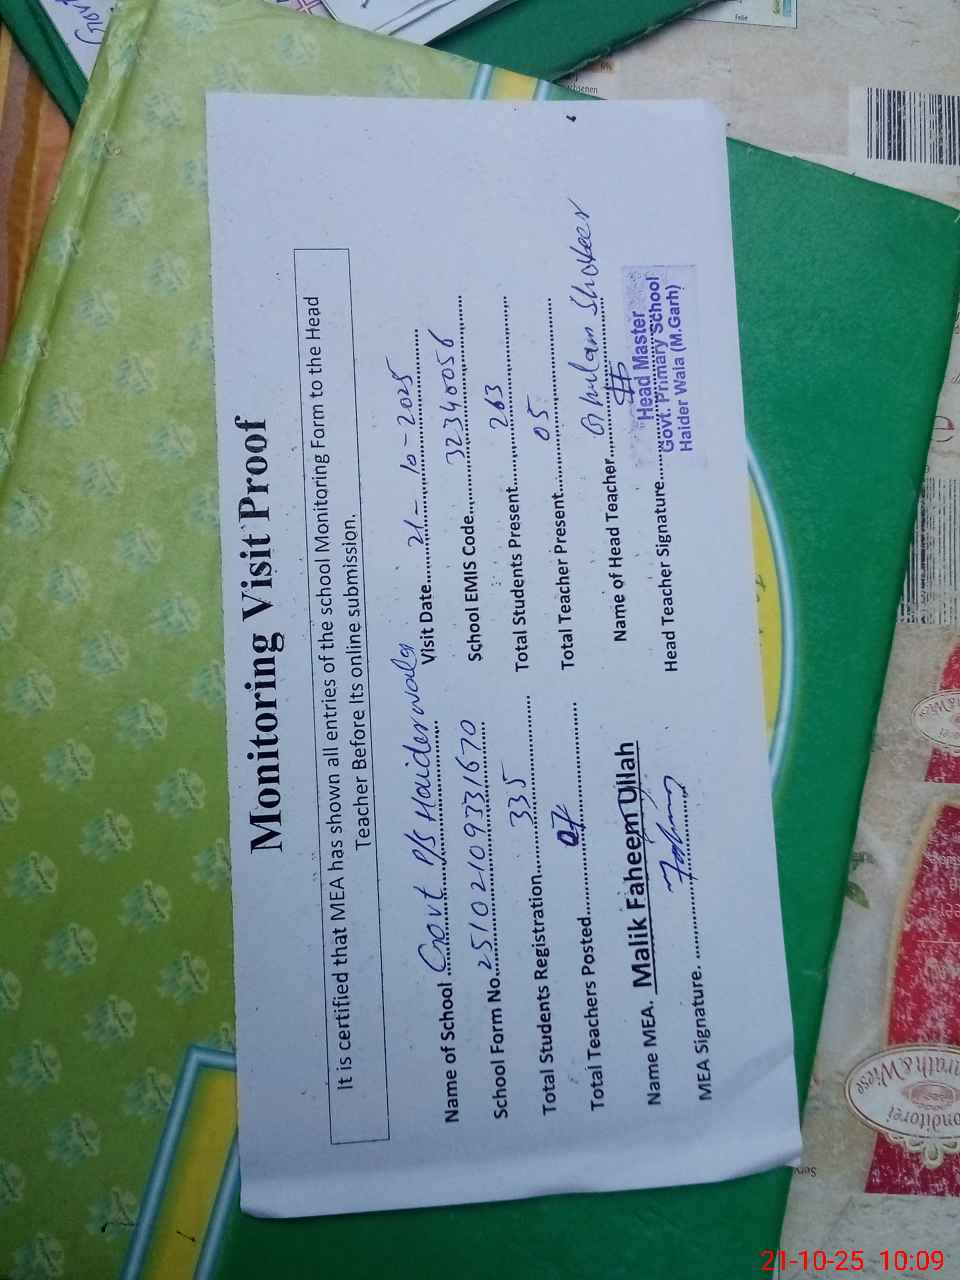 Monitoring Visit Proof
It is certified that MEA has shown all entries of the school Monitoring Form to the Head
Teacher Before Its online submission.
Name of School Govt P/S Haiderwala Visit Date 21-10-2025
School Form No. 25102109331670 School EMIS Code 32340056
Total Students Registration 335 Total Students Present 263
Total Teachers Posted 07 Total Teacher Present 05
Name MEA. Malik Faheem Ullah Name of Head Teacher Ghulam Shabeer
MEA Signature. Head Teacher Signature
Head Master
Govt. Primary School
Haider Wala (M.Garh)
Govt
rath&Wiese
onditorei
21-10-25 10:09